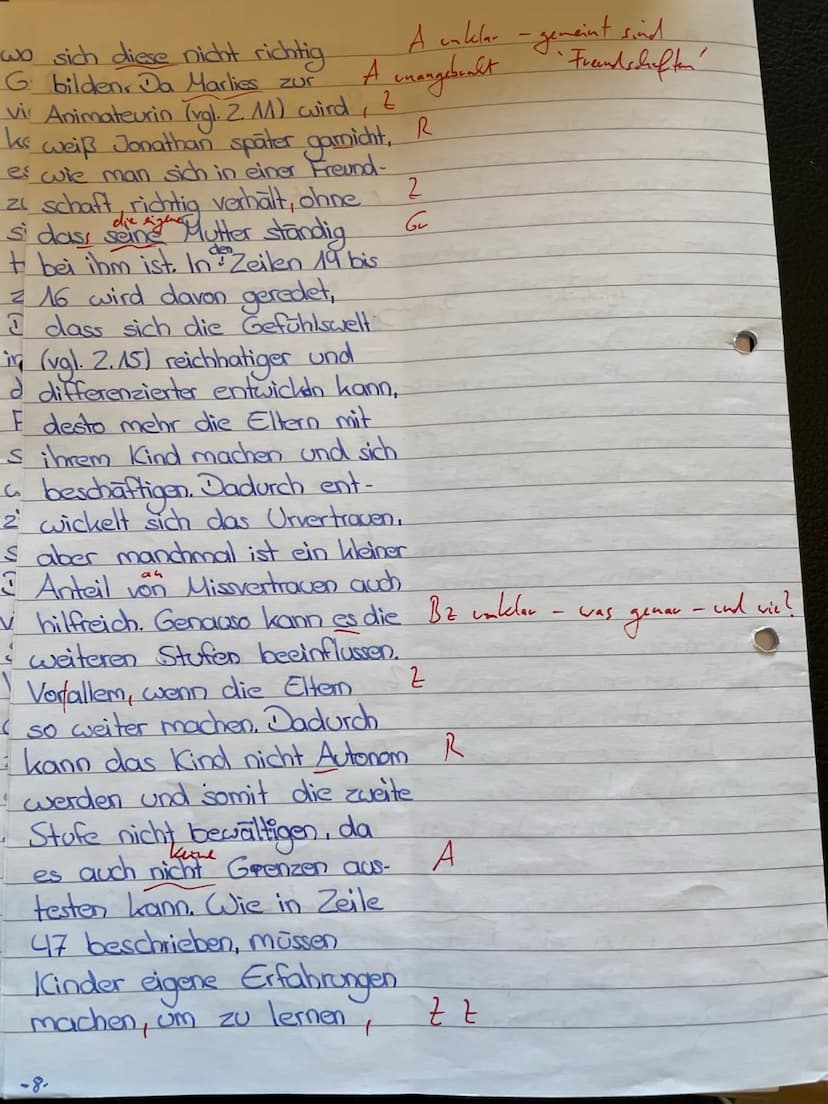 wo sich diese nicht richtig A unklar - gemeint sind
G bilden. Da Marlies zur A unangebunkt 'Freundschaften'
vi Animateurin (vgl. Z 11) wird, Z
weiß Jonathan später garnicht, R
es wie man sich in einer Freund-
zu schaft richtig verhält, ohne Z
die eigene
si dass seine Mutter ständig Gr
den
t bei ihm ist. In Zeilen 19 bis
z 16 wird davon geredet,
dass sich die Gefühlswelt
in (vgl. Z. 15) reichhatiger und
d differenzierter entwickeln kann,
F desto mehr die Eltern mit
s ihrem Kind machen und sich
beschäftigen. Dadurch ent-
z wickelt sich das Urvertrauen.
s aber manchmal ist ein kleiner
an
Anteil von Missvertrauen auch
v hilfreich. Genauso kann es die Bz unklar - was genau - und wie?
weiteren Stufen beeinflussen.
Vorallem, wenn die Eltern Z
so weiter machen. Dadurch
kann das Kind nicht Autonom R
werden und somit die zweite
Stufe nicht bewältigen, da
keine
es auch nicht Grenzen aus- A
testen kann. Wie in Zeile
47 beschrieben, müssen
Kinder eigene Erfahrungen
machen, um zu lernen, Z Z
-8-